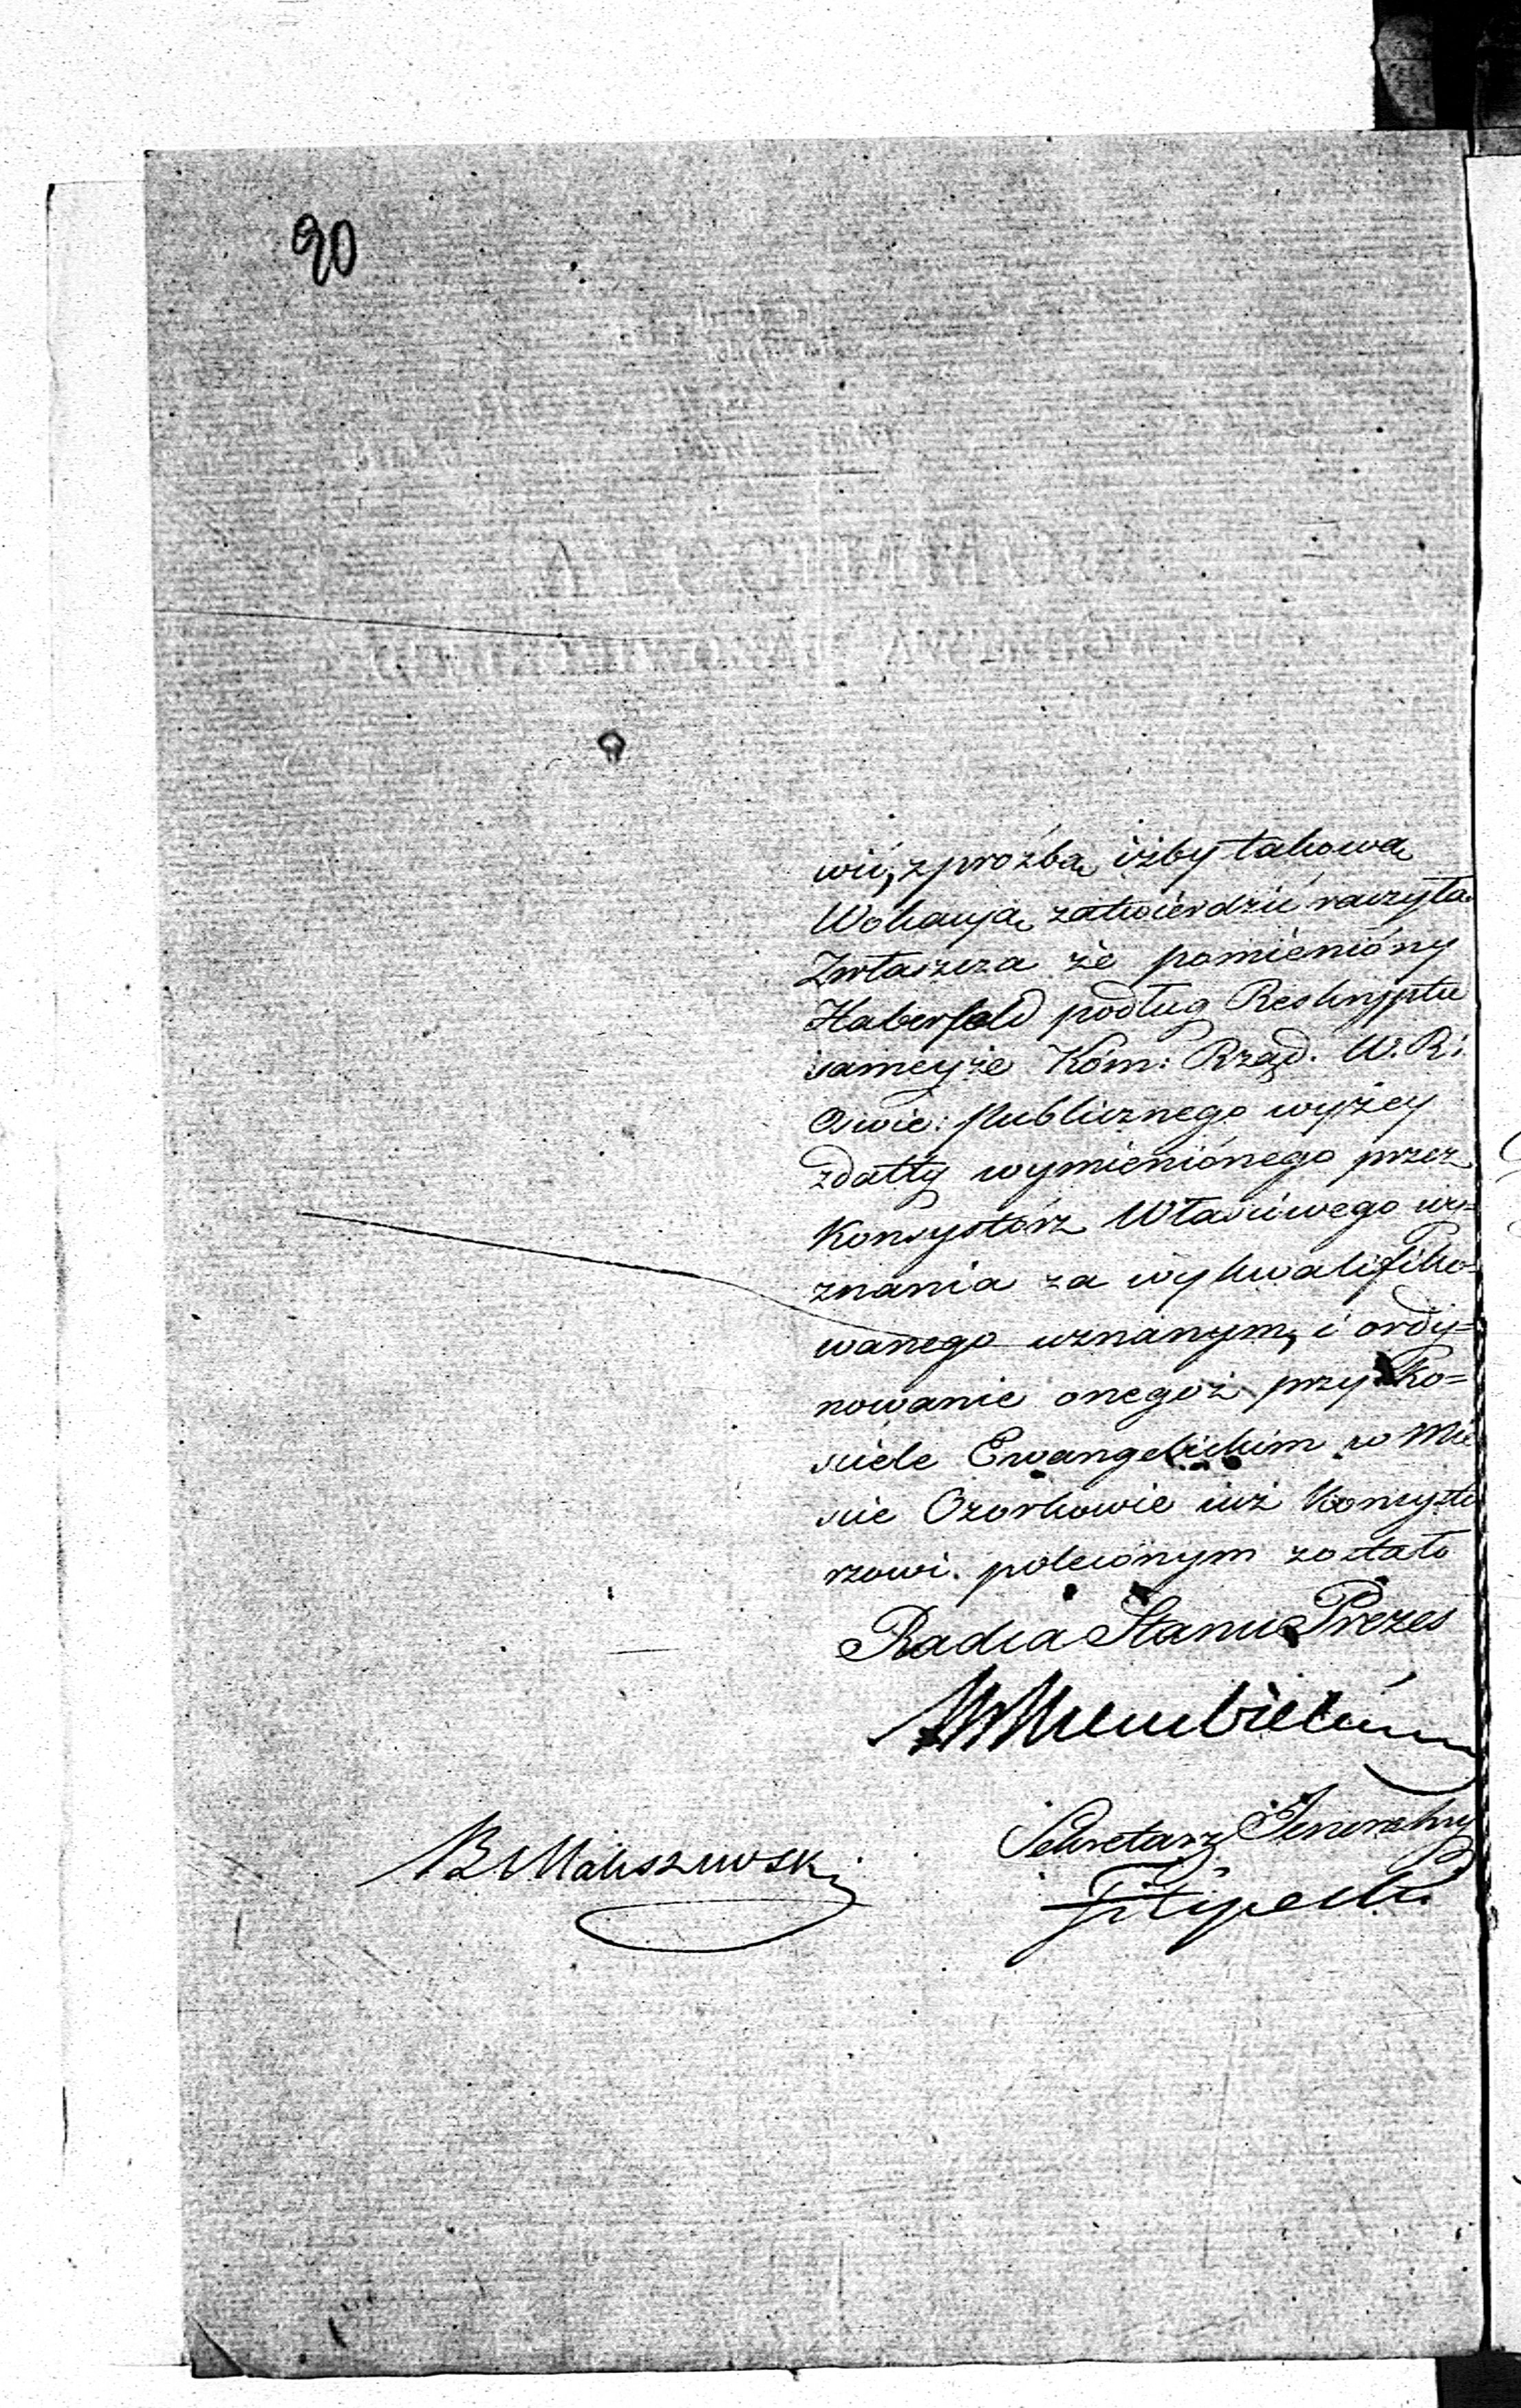 90
wić, z proźbą iżby takową
Wokacyą zatwierdzić raczyła
Zwłaszcza że pomieniony
Haberfeld podług Reskryptu
sameyże Kom: Rząd. W. R. i
Oswie: Publicznego wyżey
z datty wymienionego przez
Konsystorz Właściwego wy=
znania za wykwalifiko=
wanego uznanym, i ordy=
nowanie onegoż przy Ko=
ściele Ewangelickim w Mie
ście Ozorkowie iuż Konsysto
rzowi poleconym zostało
Radca Stanu Prezes
Sekretarz Jeneralny
Filipecki
B Maliszewski